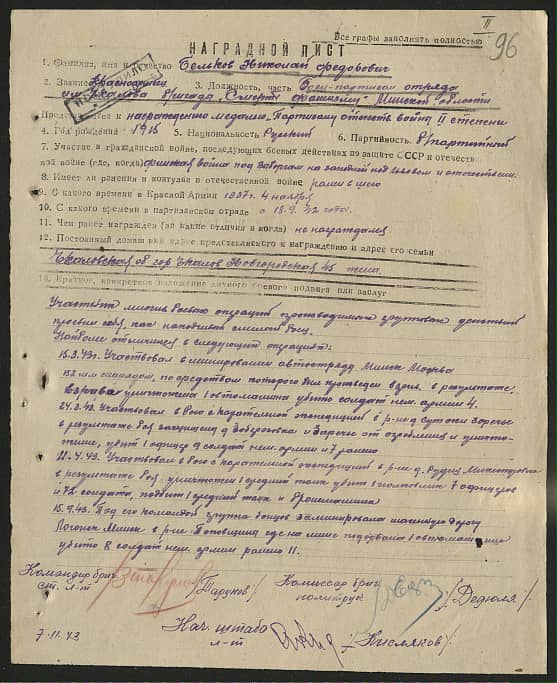 Все графы заполнять полностью
II
96
НАГРАДНОЙ ЛИСТ
1. Фамилия, имя и отчество Семков Николай Федорович
2. Звание Красноармеец 3. Должность, часть Боец-партизан отряда
им. Чкалова бригада „Смерть фашизму“ Минской области
Представляется к награждению медалью „Партизану отечеств война II степени
4. Год рождения 1916 5. Национальность Русский 6. Партийность б/партийный
7. Участие в гражданской войне, последующих боевых действиях по защите СССР и отечествен-
ной войне (где, когда) финская война под на западной под Львовом и отечествен.
8. Имеет ли ранения и контузии в отечественной войне ранен в шею
9. С какого времени в Красной Армии 1937г. 4 ноября
10. С какого времени в партизанском отряде с 18.9. 42 года.
11. Чем ранее награжден (за какие отличия и когда) не награждался
12. Постоянный домашний адрес представляемого к награждению и адрес его семьи
Чкаловская об гор Чкалов Новгородская 45 жена.
13. Краткое, конкретное изложение личного боевого подвига или заслуг
Участвуя многих боевых операций проводимых групповых действий
проявил себя, как находчивый смелый боец.
Наиболее отличился в следующих операциях:
15.3.43. Участвовал в минировании автостраду Минск Москва
152 м/м снарядом, по средством которого был произведен взрыв, в результате
взрыва уничтожена 1 автомашина убито солдат нем. армии 4.
Участвовал в бою с карательной экспедицией в р-не д Сутоки Заречье
в результате боя защищена д Заберезовка и Заречье от ограбления и уничто-
жение, убит 1 офицер 9 солдат нем. армии и 7 ранено
11.4.43. Участвовал в бою с карательной экспедицией в р-не д. Рудня
в результате боя уничтожен 1 средний танк убит 1 полковник 7 офицеров
и 72 солдата, подбит 1 средний танк и бронемашина
15.9.43. Под его командой группа бойцов заминировала шоссейную дорогу
Логойск Минск в р-не где на мине подорвана 1 автомашина
убито 8 солдат нем. армии ранено 11.
Командир бриг.
ст. л-т /Тарунов/
Комиссар бриг
политрук /Дедюля/
7.11.43
Нач. штаба
л-т /Кисляков/